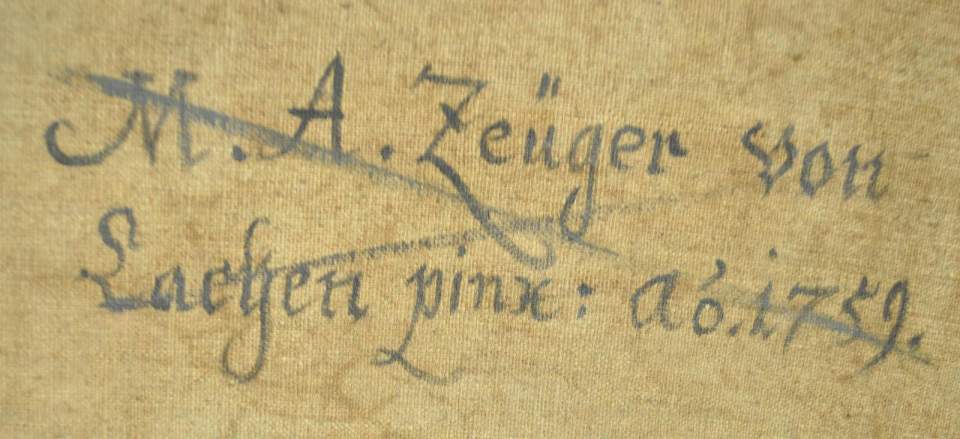 M. A. Zeüger von
Lachen pinx: aó. 1759.